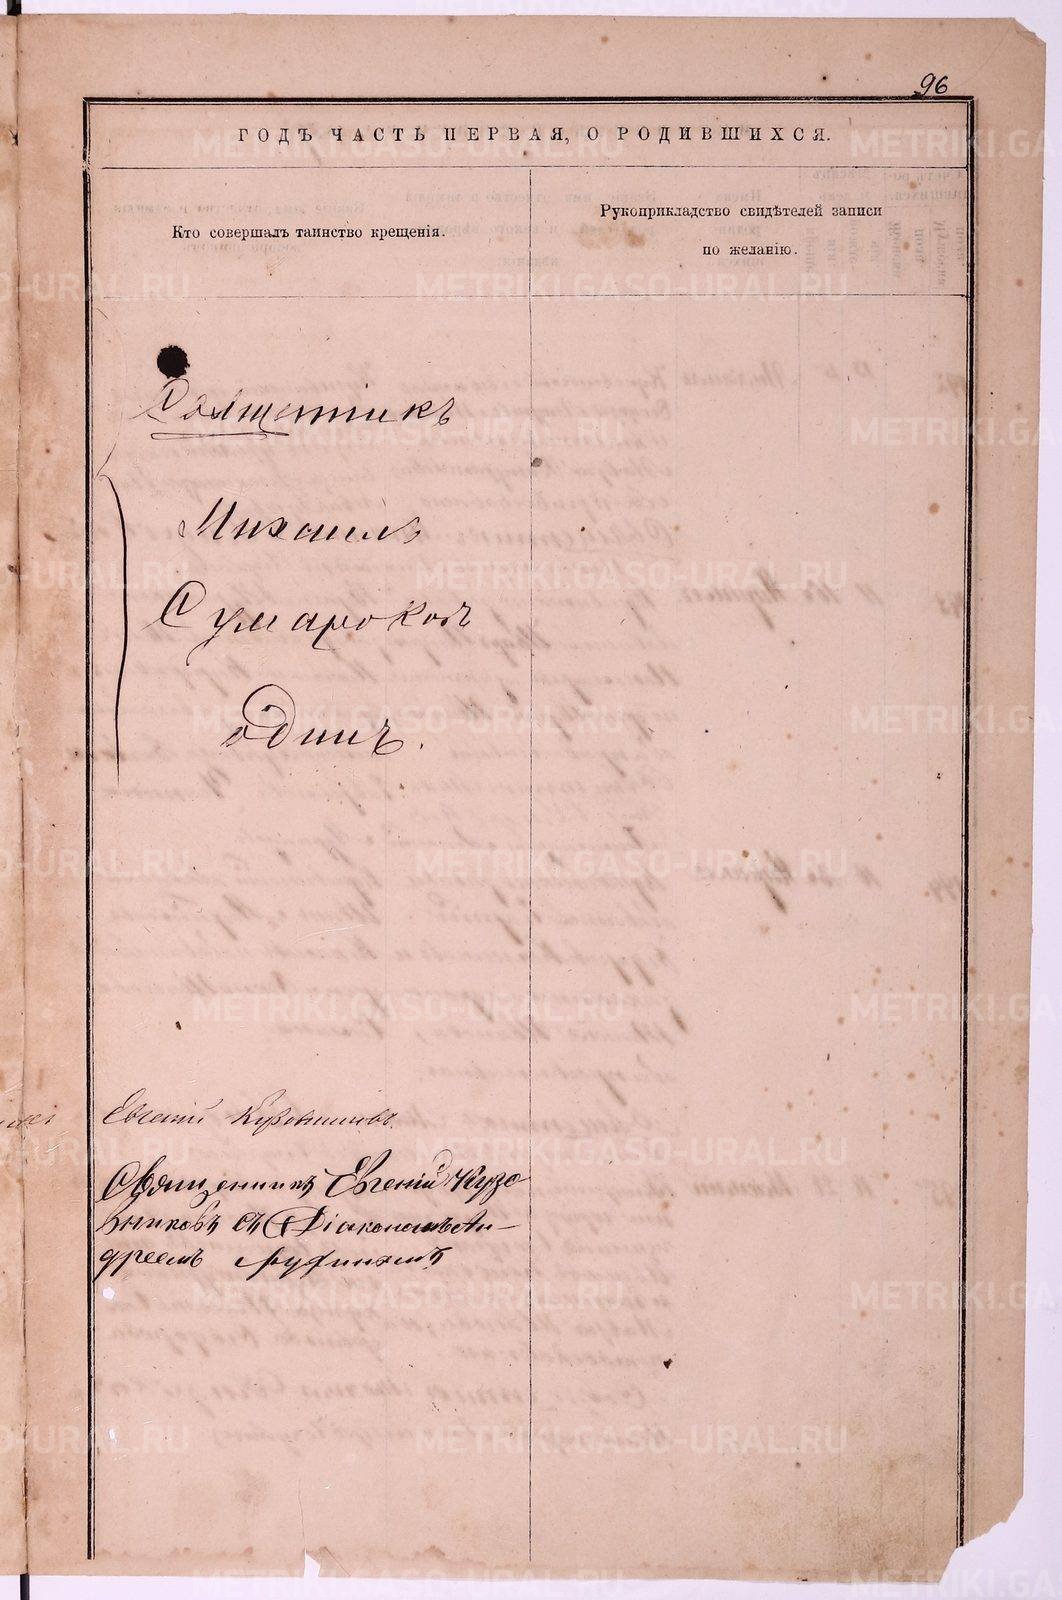 96
ГОДЪ ЧАСТЬ ПЕРВАЯ, О РОДИВШИХСЯ.
Кто совершалъ таинство крещенія.
Рукоприкладство свидѣтелей записи
по желанію.
Священникъ
Михаилъ
Сумароковъ
один.
Евгеній Кузовниковъ.
Священникъ Евгеній Кузо-
вниковъ съ Діакономъ Ан-
дреемъ
METRIKI.GASO-URAL.RU